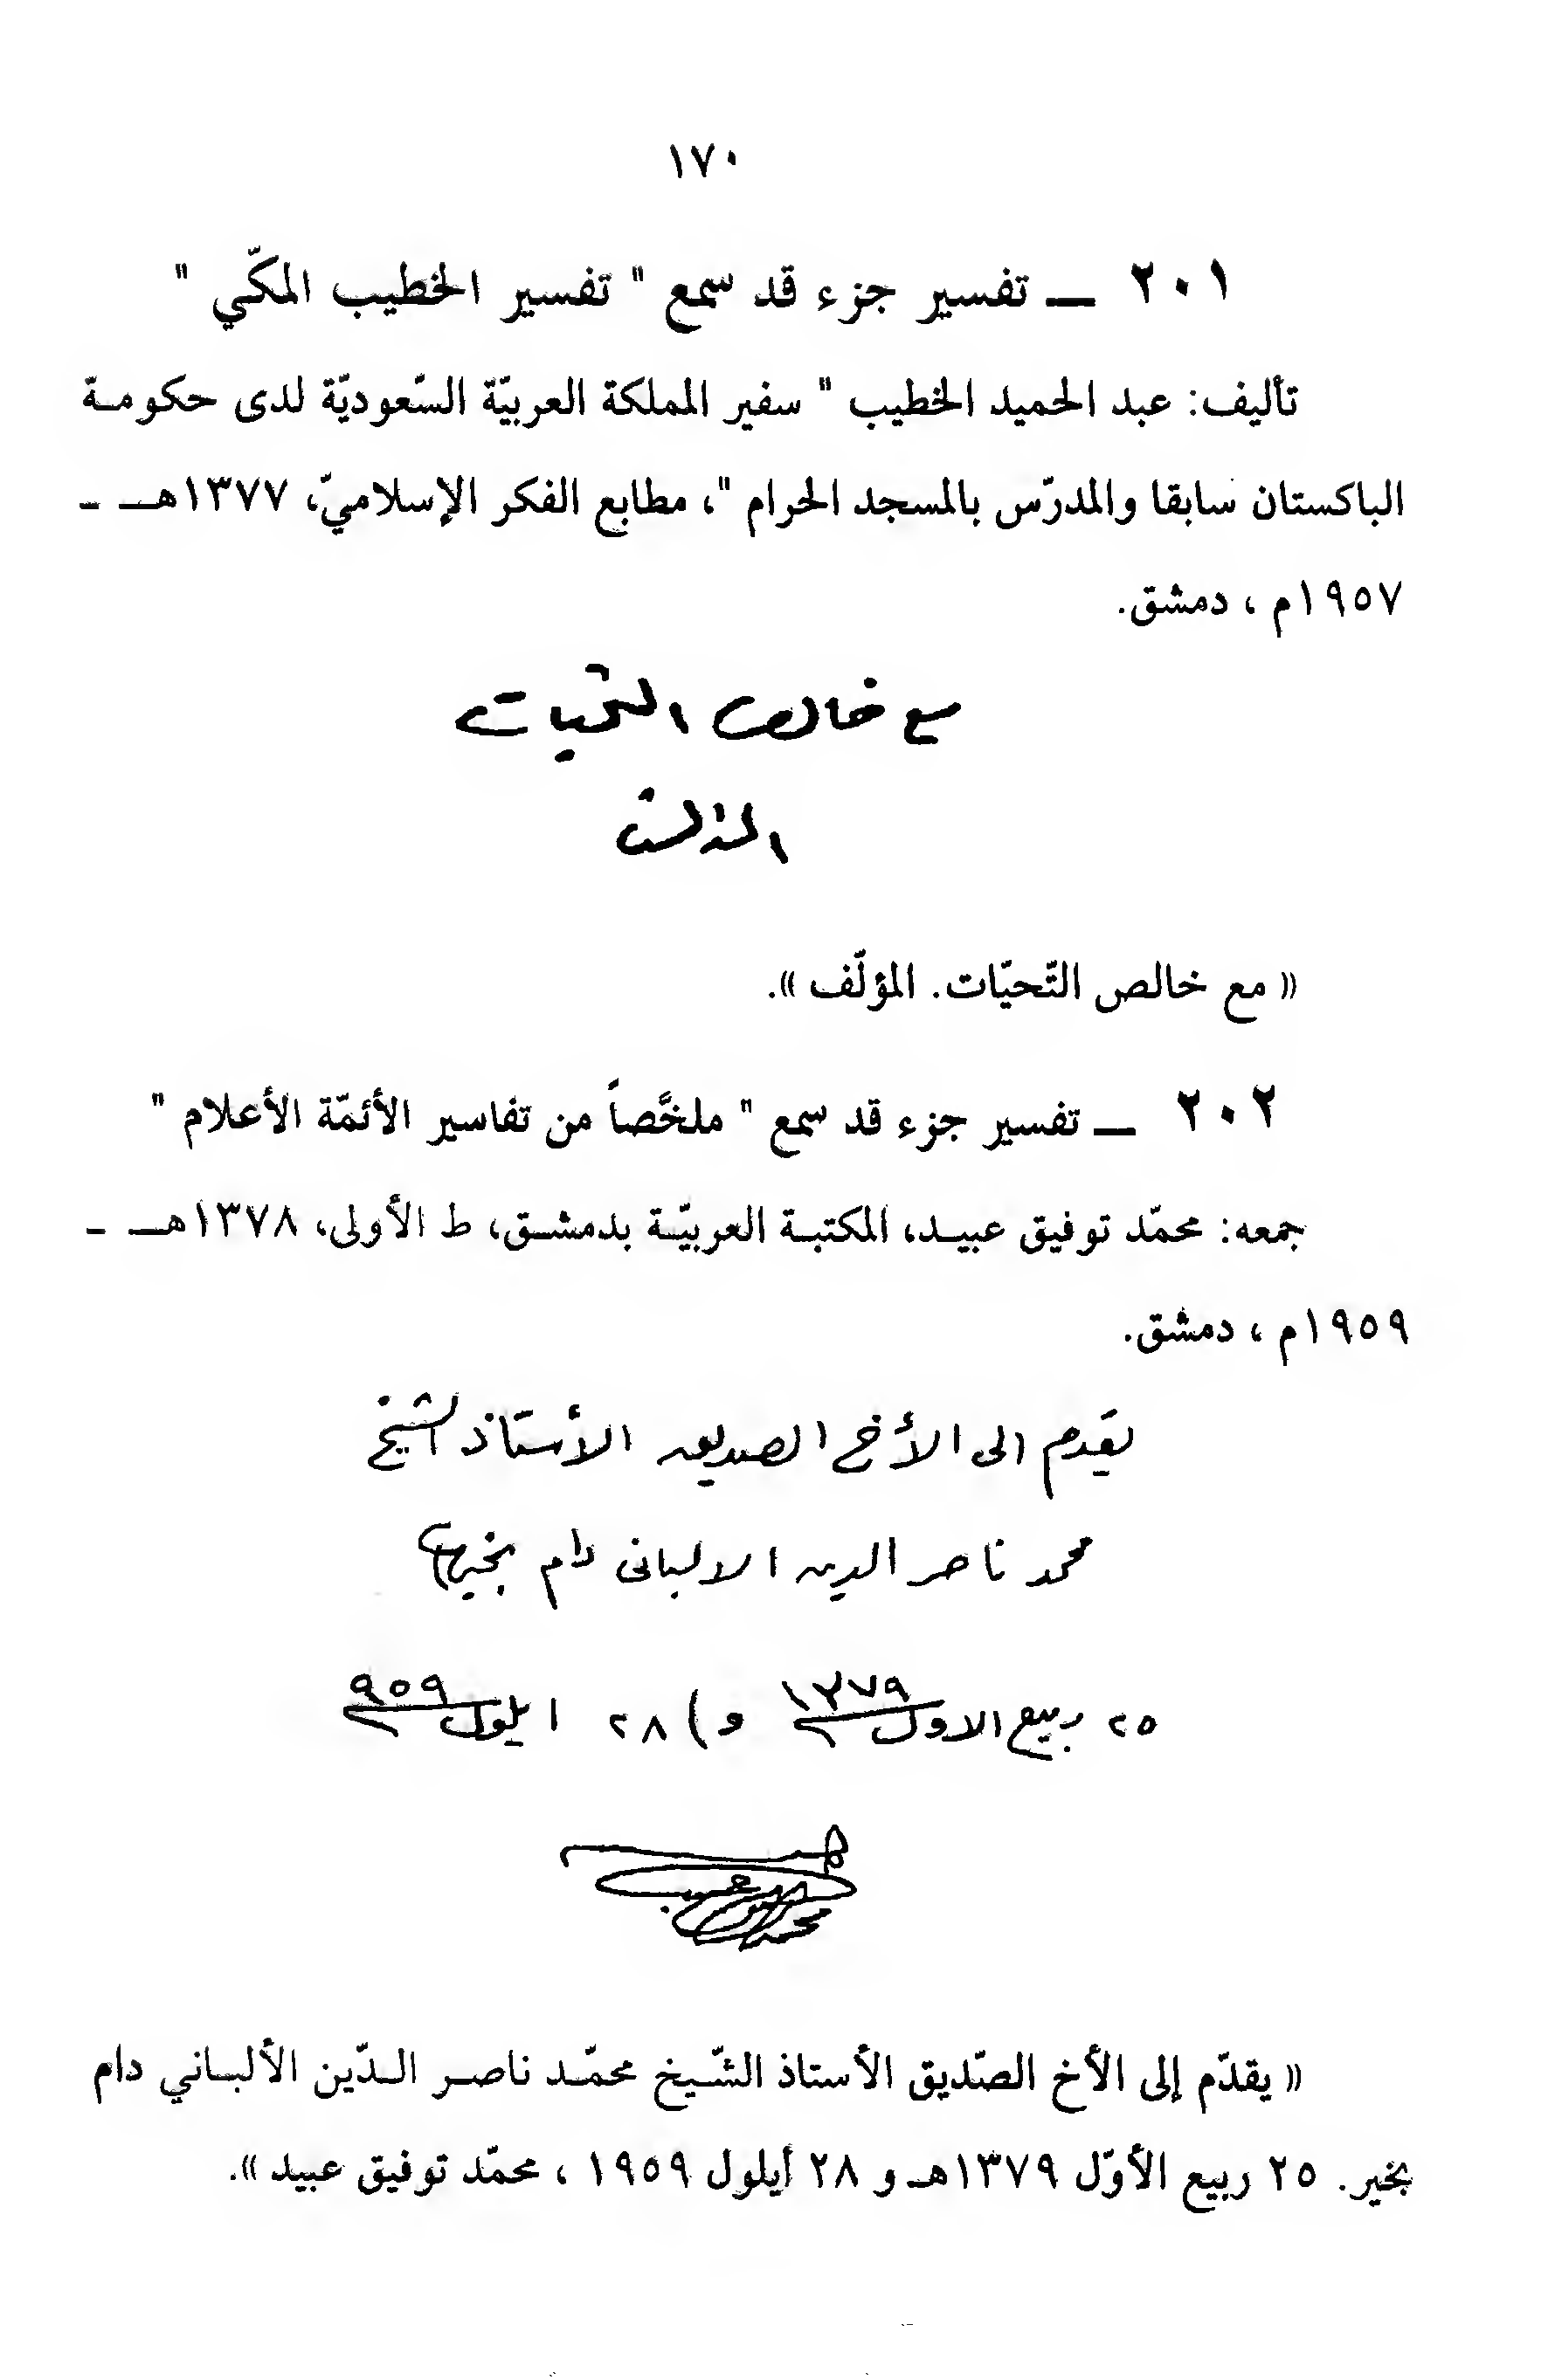 ١٧٠
٢٠١ — تفسير جزء قد سمع " تفسير الخطيب المكّي "
تأليف: عبد الحميد الخطيب " سفير المملكة العربيّة السّعوديّة لدى حكومة
الباكستان سابقا والمدرّس بالمسجد الحرام "، مطابع الفكر الإسلاميّ، ١٣٧٧هـ -
١٩٥٧م ، دمشق.
مع خالص التحيات
المؤلف
« مع خالص التّحيّات. المؤلّف ».
٢٠٢ — تفسير جزء قد سمع " ملخَّصاً من تفاسير الأئمّة الأعلام "
جمعه: محمّد توفيق عبيد، المكتبة العربيّة بدمشق، ط الأولى، ١٣٧٨هـ -
١٩٥٩م ، دمشق.
يقدم الى الأخ الصديق الأستاذ الشيخ
محمد ناصر الدين الالباني دام بخير
٢٥ ربيع الاول ١٣٧٩ و) ٢٨ ايلول ٩٥٩
« يقدّم إلى الأخ الصّديق الأستاذ الشّيخ محمّد ناصر الدّين الألباني دام
بخير. ٢٥ ربيع الأوّل ١٣٧٩هـ و ٢٨ أيلول ١٩٥٩ ، محمّد توفيق عبيد ».